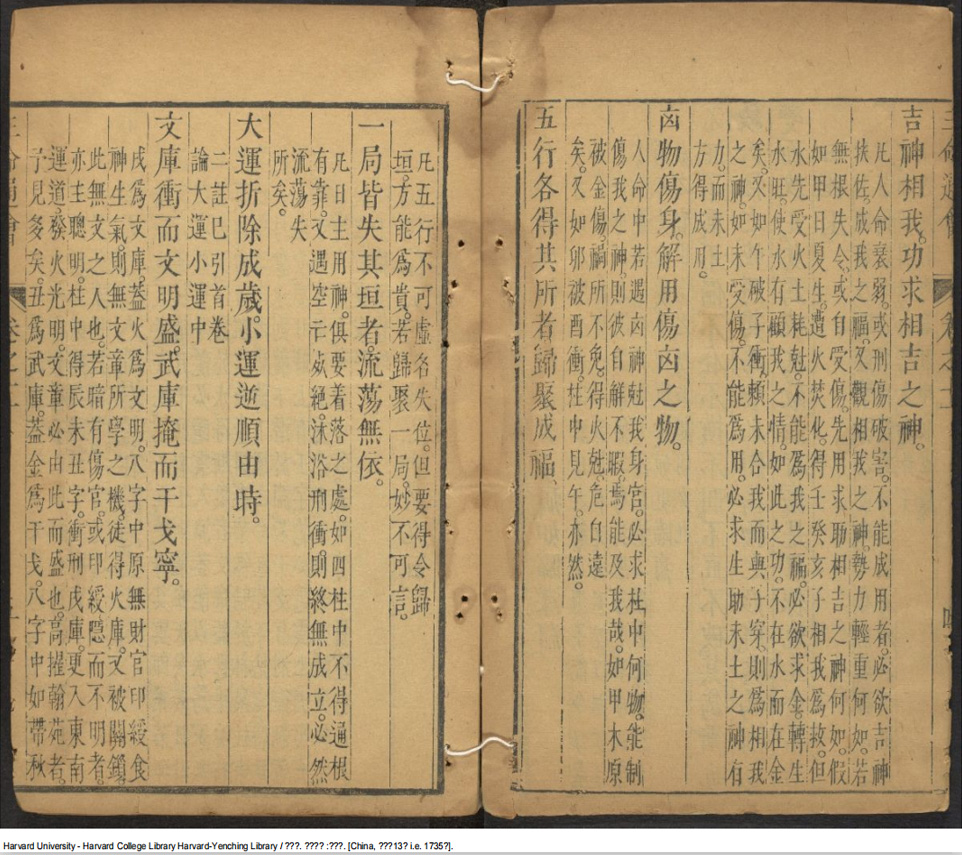 吉神相我。功求相吉之神。
凡人命衰弱。或刑傷破害。不能成用者。必欲吉神
扶佐。成我之福。又觀相我之神。勢力輕重何如。若
無根失令。或自受傷。先用求助相吉之神何如。假
如甲日夏生。遭火焚化。得壬癸亥子相我爲救。但
水先受火土耗尅。不能爲我之福。必欲求金。轉生
水旺。使水有顧我之情。如此之功。不在水而在金
矣。又如午破子衝。頼未合我而與子穿。則爲相我
之神。如未受傷。不能爲用。必求生助未土之神有
力。而未土
方得成用。
凶物傷身。解用傷凶之物。
人命中若遇凶神尅我身宮。必求柱中何物。能制
傷我之神。則彼自解不暇。焉能及我哉。如甲木原
被金傷。禍所不免。得火尅。危自遠
矣。又如卯被酉衝。柱中見午。亦然。
五行各得其所者。歸聚成福。
凡五行不可虛名失位。但要得令歸
垣。方能爲貴。若歸聚一局。妙不可言。
一局皆失其垣者。流蕩無依。
凡日主用神。俱要着落之處。如四柱中不得通根
有靠。又遇空亡死絕。沐浴刑衝。則終無成立。必然
流蕩失
所矣。
大運折除成歲。小運逆順由時。
二註巳引首卷
論大運小運中
文庫衝而文明盛。武庫掩而干戈寧。
戌爲文庫。蓋火爲文明。八字中原無財官印綬食
神生氣。則無文章所學之機。徒得火庫。又被關鎖
此無文之人也。若暗有傷官。或印綬隱而不明者。
亦主聰明。柱中得辰未丑字。衝刑戌庫。更入東南
運道。發火光明。文章必由此而盛也。高擢翰苑者。
子見多矣。丑爲武庫。蓋金爲干戈。八字中如帶秋
Harvard University - Harvard College Library Harvard-Yenching Library / ???. ???? :???. [China, ???13? i.e. 1735?].